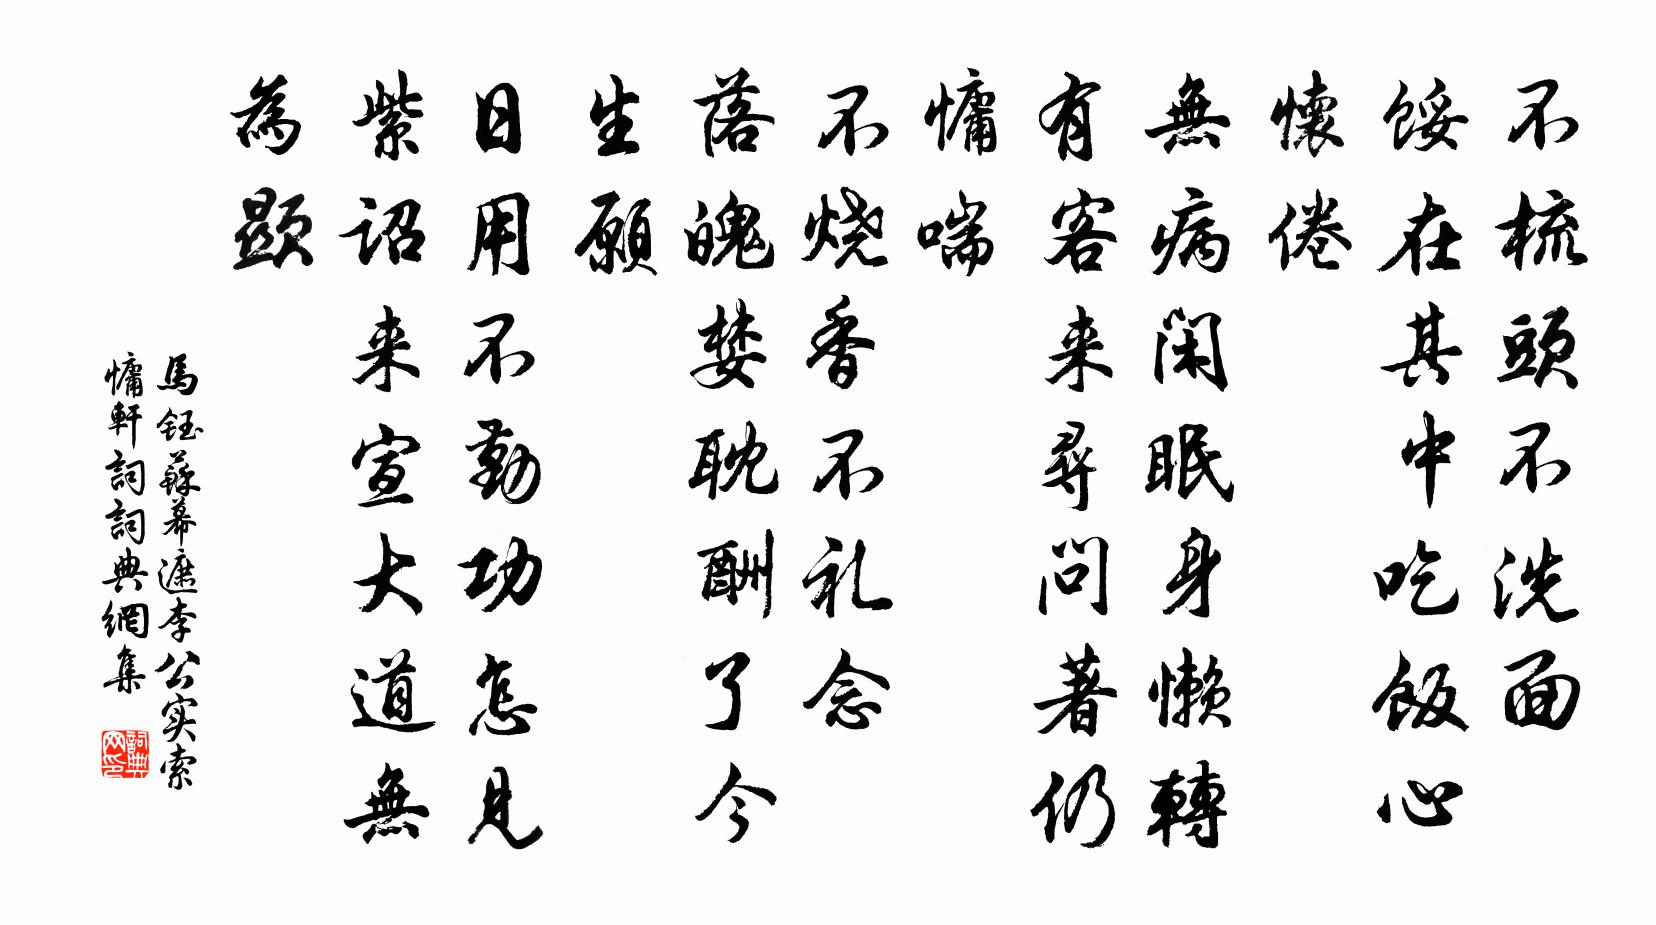 不梳頭不洗面
餒在其中吃飯心
懷倦
無病閑眠身懶轉
有客来尋問著仍
慵喘
不烧香不礼念
落魄婪耽酬了今
生願
日用不勤功怎見
紫詔来宣大道無
為顯
馬鈺蘇幕遮李公实索
慵軒詞詞典網集
詞典网印